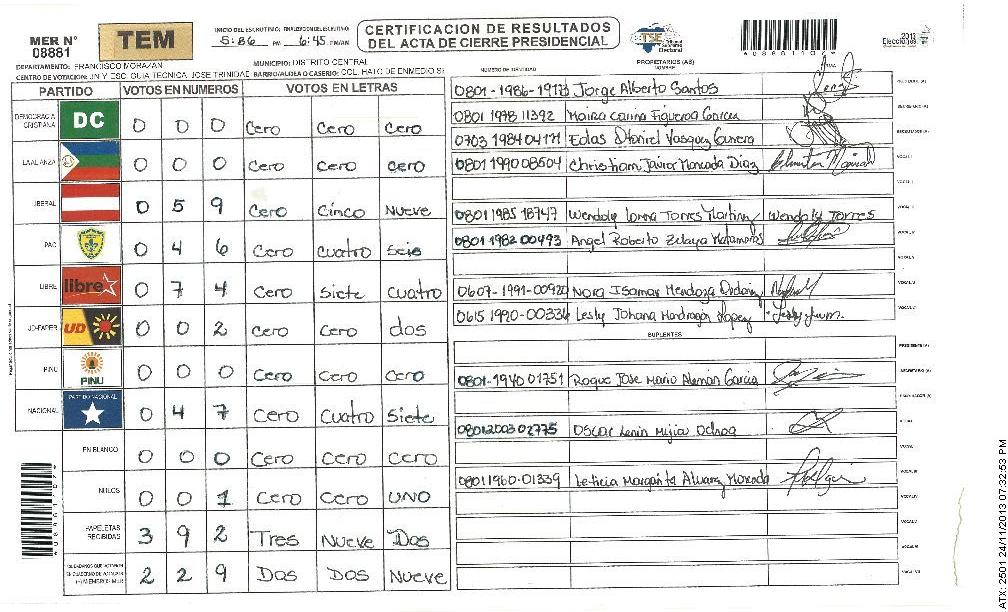 MER N° 08881
TEM
INICIO DEL ESCRUTINIO: FINALIZACION DEL ESCRUTINIO:
5:86 PM 6:45 PM/AM
CERTIFICACION DE RESULTADOS
DEL ACTA DE CIERRE PRESIDENCIAL
TSE
Tribunal Supremo Electoral
2013
Elecciones
DEPARTAMENTO: FRANCISCO MORAZAN
MUNICIPIO: DISTRITO CENTRAL
CENTRO DE VOTACION: JN Y ESC. GUIA TECNICA, JOSE TRINIDAD BARRIO/ALDEA O CASERIO: COL. HATO DE ENMEDIO
PARTIDO VOTOS EN NUMEROS VOTOS EN LETRAS
DEMOCRACIA CRISTIANA DC 0 0 0 Cero Cero Cero
LA ALIANZA 0 0 0 Cero Cero Cero
LIBERAL 0 5 9 Cero Cinco Nueve
PAC 0 4 6 Cero Cuatro Seis
LIBRE libre 0 7 4 Cero Siete Cuatro
UD-FAPER UD 0 0 2 Cero Cero dos
PINU PINU 0 0 0 Cero Cero Cero
NACIONAL PARTIDO NACIONAL 0 4 7 Cero Cuatro Siete
EN BLANCO 0 0 0 Cero Cero Cero
NULOS 0 0 1 Cero Cero UNO
PAPELETAS RECIBIDAS 3 9 2 Tres Nueve Dos
2 2 9 Dos Dos Nueve
NUMERO DE IDENTIDAD PROPIETARIOS (AS) NOMBRE FIRMA
Jorge Alberto Santos
0801 1978 11392 Maira Carina Figueroa Garcia
Vasquez
0801 1990 08504 Christian Javier Moncada Diaz
0801 1985 18747 Torres Wendoly Torres
0801 1982 00493 Angel Roberto Zelaya Matamoros
0607-1991-00920 Nora Isamar Mendoza
0615 1990-00336 Lesly Johana Mondragon Lopez
SUPLENTES
0801-1940 01751 Roque Jose Mario Aleman Garcia
0801200302775 Oscar Lenin Mejia Ochoa
08011960-01339 Leticia Margarita Alvarez Moncada
ATX: 2501 24/11/2013 07:32:53 PM